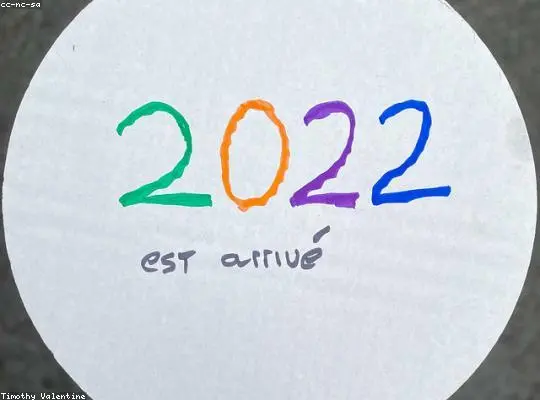 cc-nc-sa
2022
est arrivé
Timothy Valentine